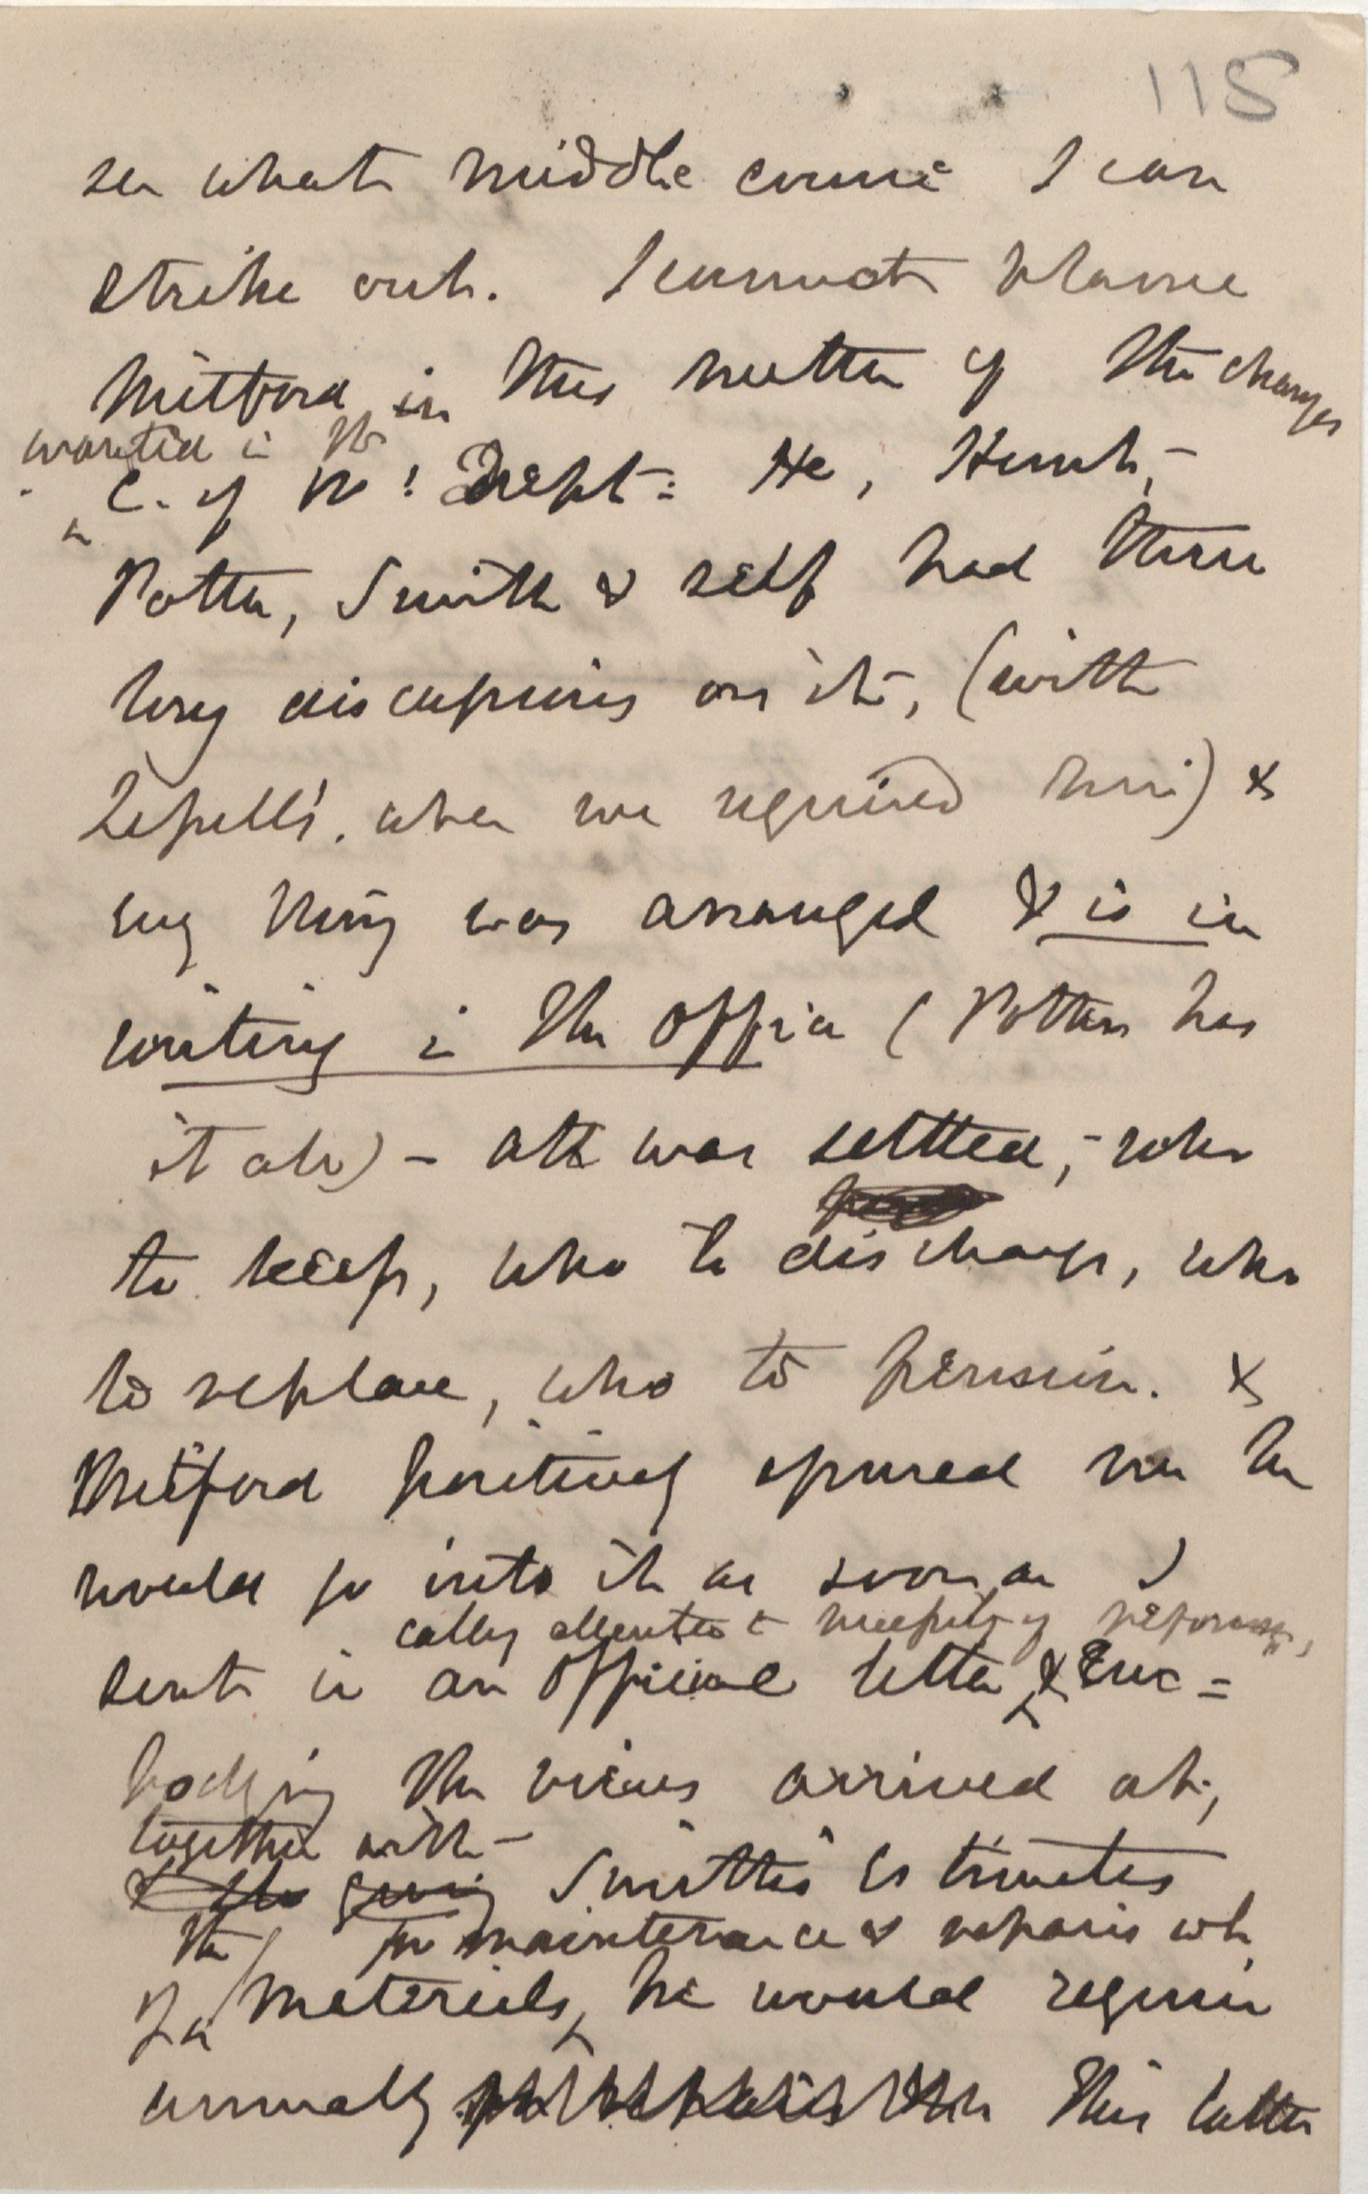 115
see what middle course I can
strike out. I cannot blame
Mitford in this matter of the changes
wanted in the
C. of W! Dept: He, Hurst,
Potter, Smith & self had three
long discussions on it, (with
when we required him) &
evy thing was arranged & is in
writing in the office (Potter has
it also) - all was settled, - who
to keep, who to discharge, who
to replace, who to pension. &
Mitford positively me he
would go into it as soon as I
callg attention to necessity of reforms,
sent in an official letter & em=
bodying the views arrived at,
together with -
& also giving Smith's Estimates
the for maintenance & repairs wh
of materials, he would require
annually This latter